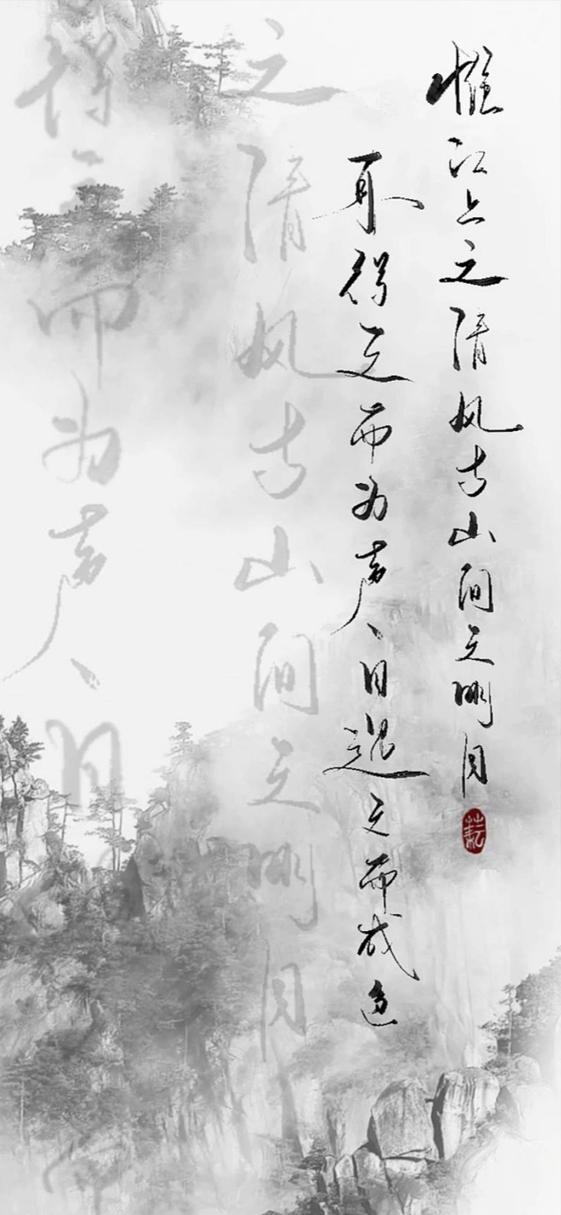 惟江上之清风与山间之明月
耘
耳得之而为声目遇之而成色
之清风与山间之明月
得之而为声目